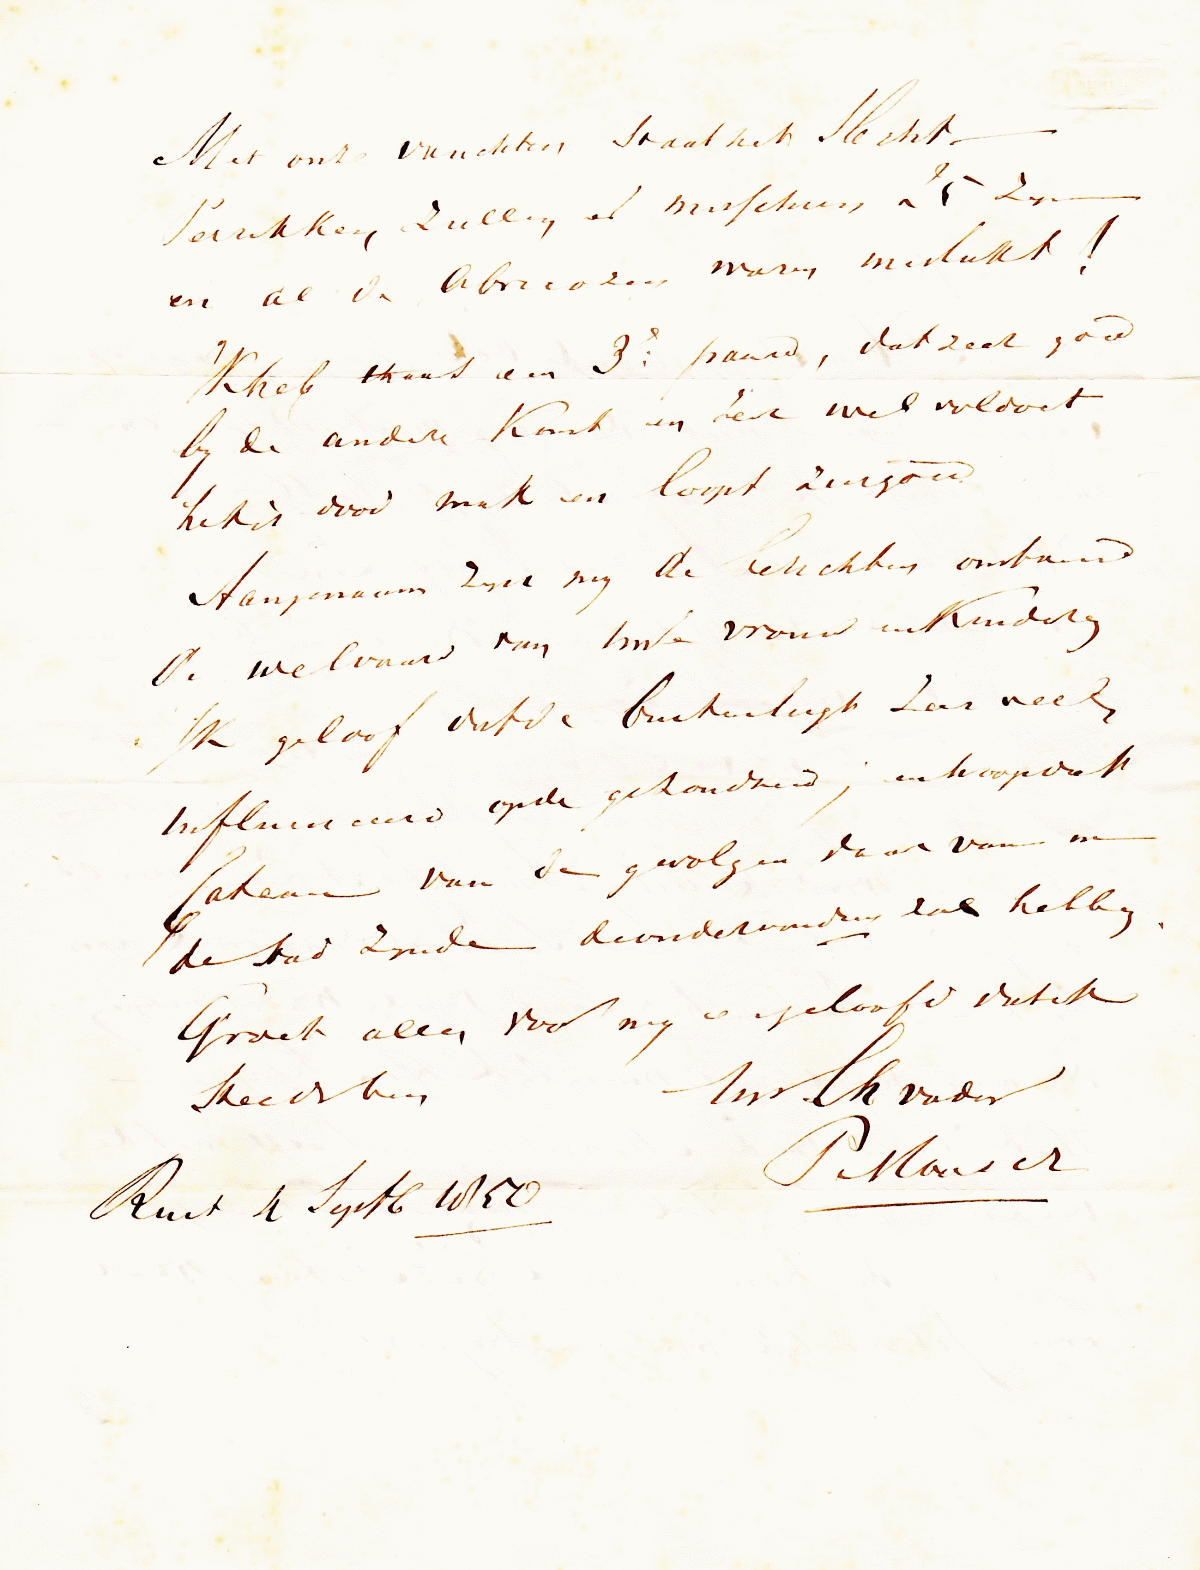 Met onze vruchten staat het slecht
Persikken zullen er misschien 25 zyn
en al de Abricozen waren mislukt!
'K heb thans een 3e paard, dat zeer goed
by de andere komt en zeer wel voldoet
het is dood mak en loopt zeer goed
Aangenaam zyn my de berichten omtrend
de welvaard van uwe vrouw en Kinderen
Ik geloof dat de buitenlugt zeer veel
influenceerd op de gezondheid; en hoop dat
van de gevolgen daar van in
de stad zynde de ondervinding zal hebben.
Groet allen voor my en geloofd dat ik
steeds ben
Uw Sch vader
P Moeser
Rust 4 Septb 1850